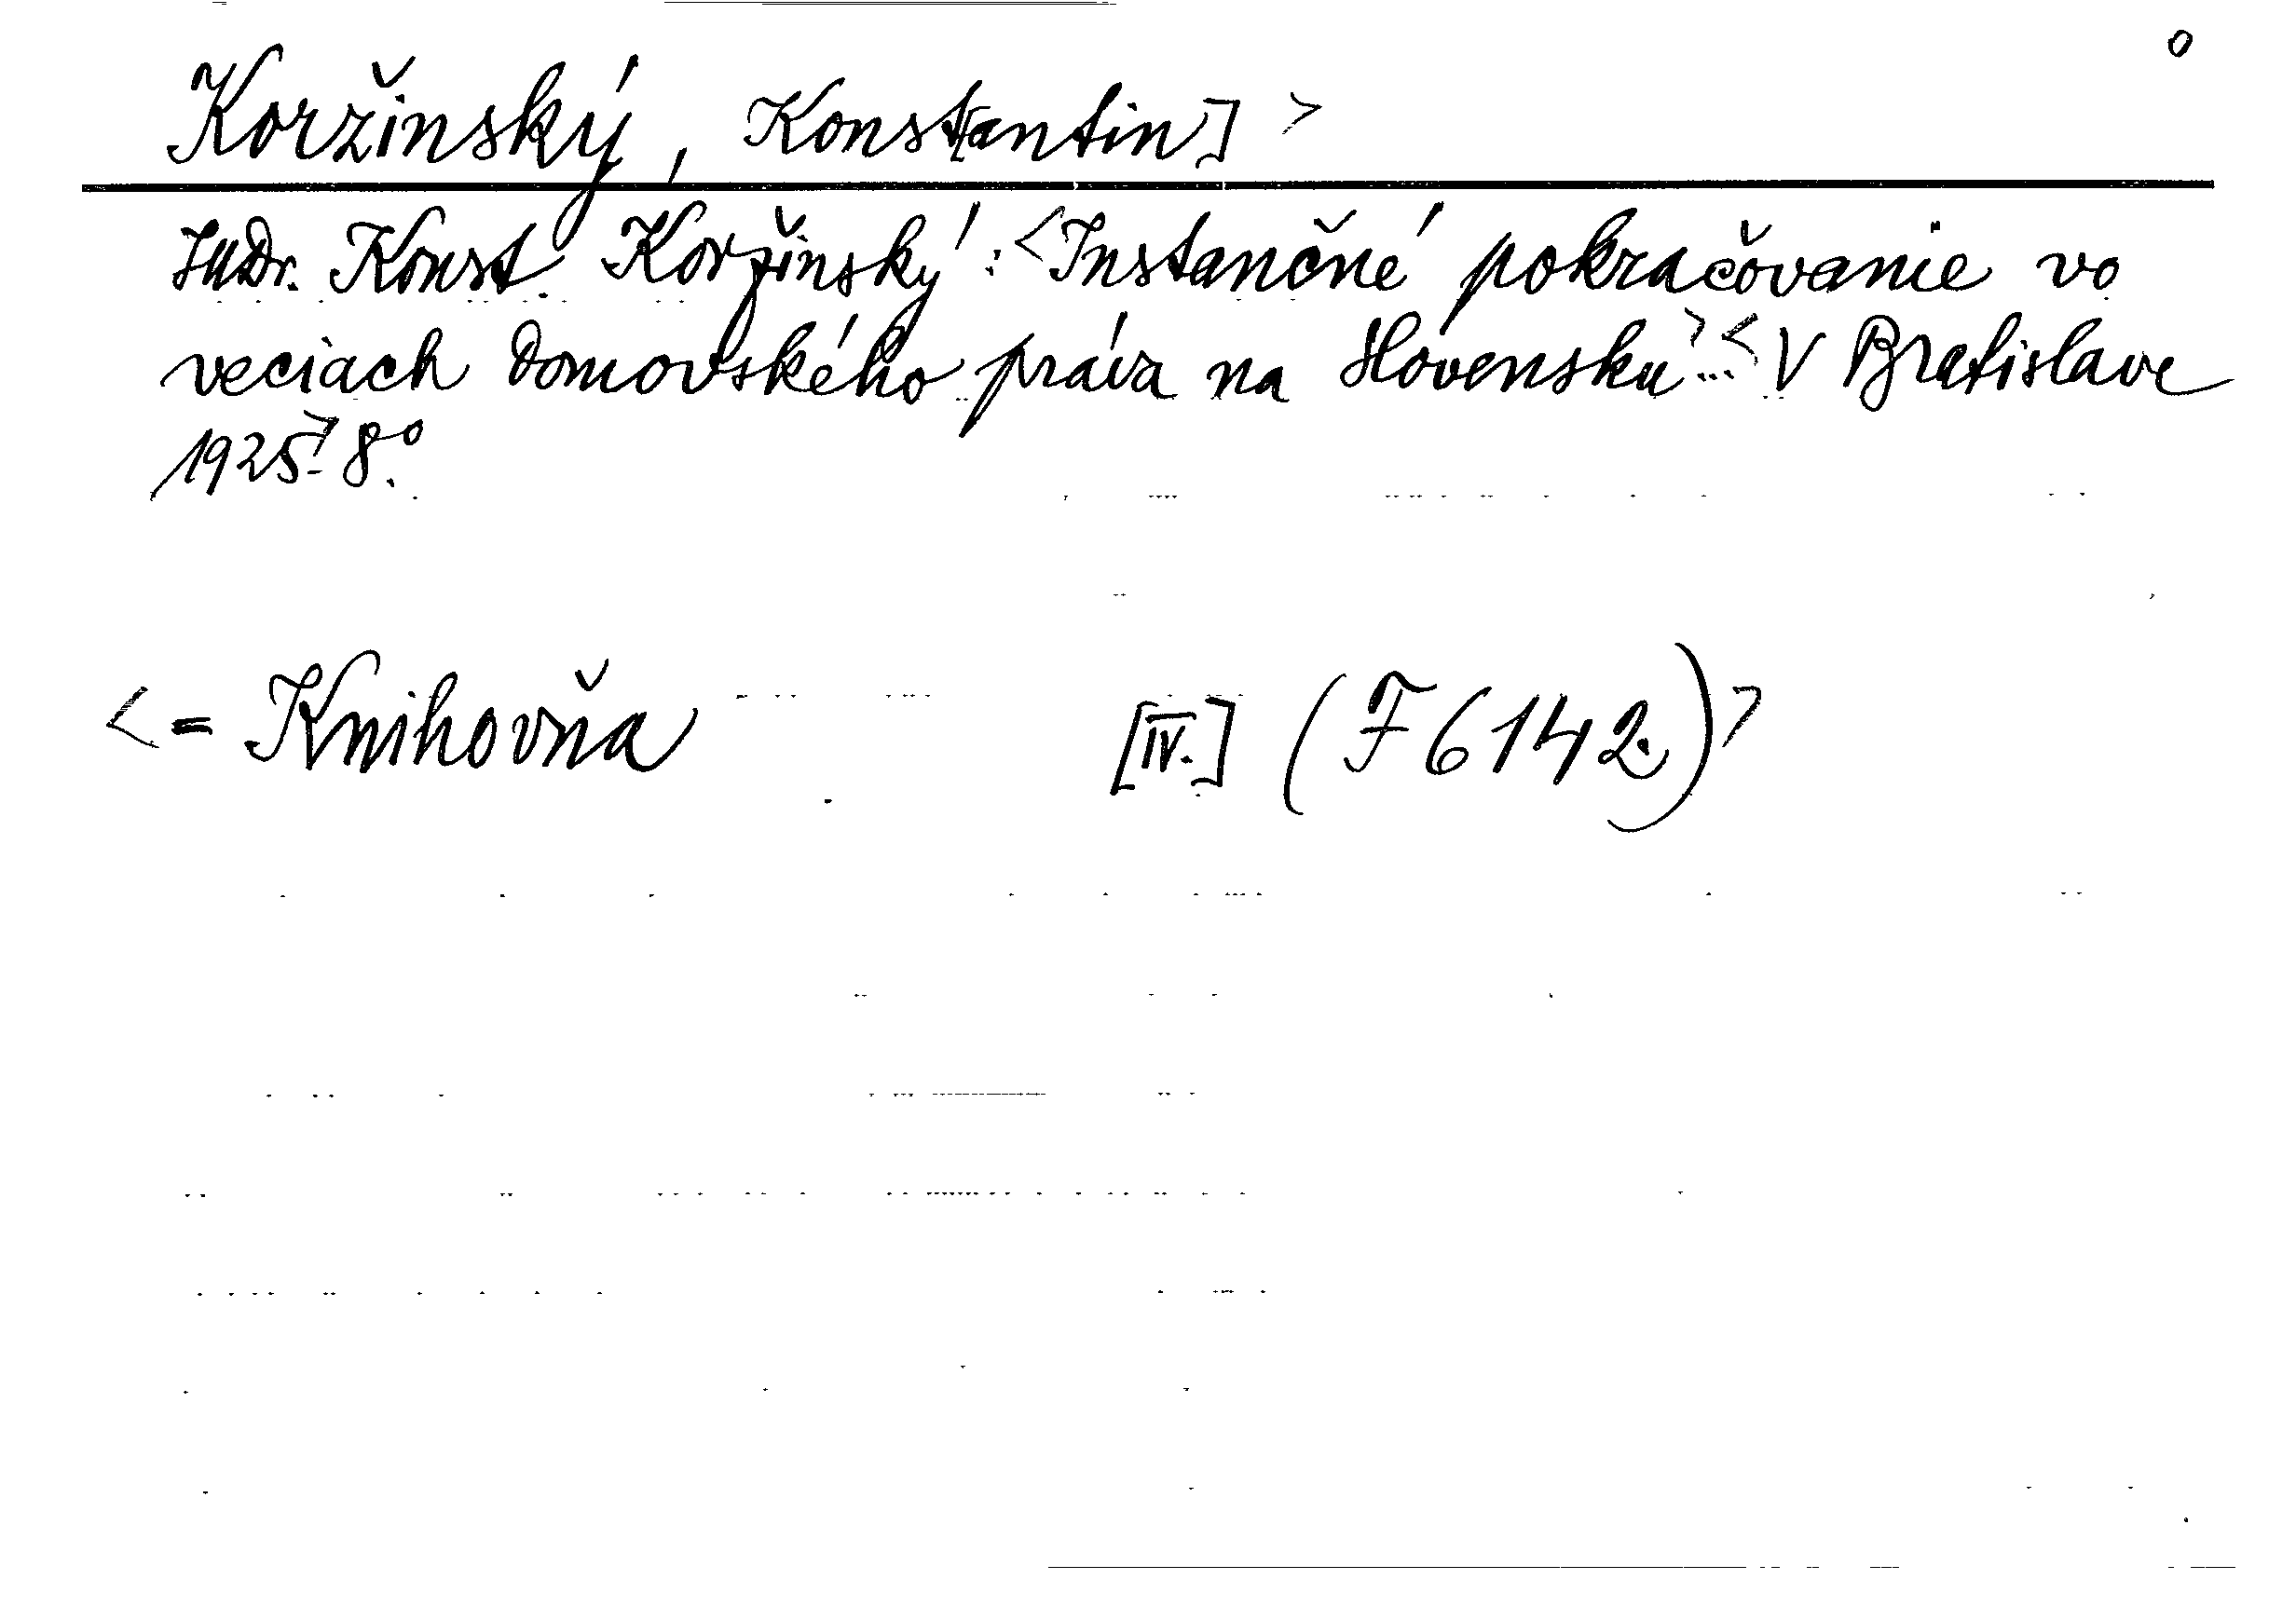 o
Koržinský, Konst[antin] >
JUDr. Konst. Koržinský: <Instančné pokračovanie vo
veciach domovského práva na Slovensku> ... <V Bratislave
1925.> 8°.
<= Knihovňa [IV.] (F 6142.)>